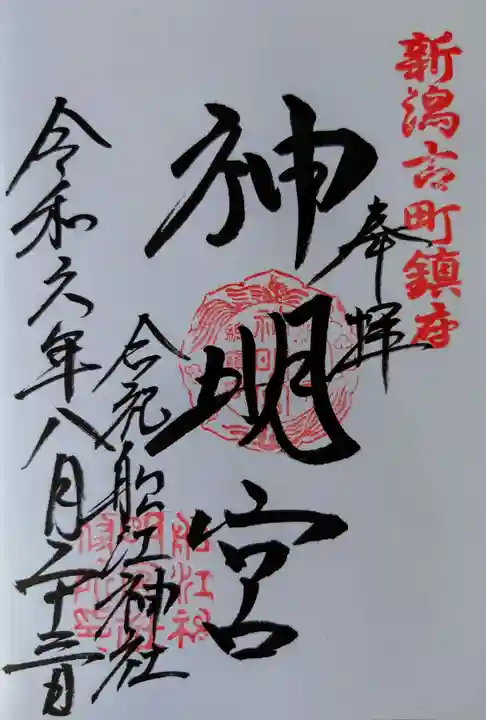 新潟古町鎮座
奉拝
神明宮
合祀船江神社
令和六年八月二十三日